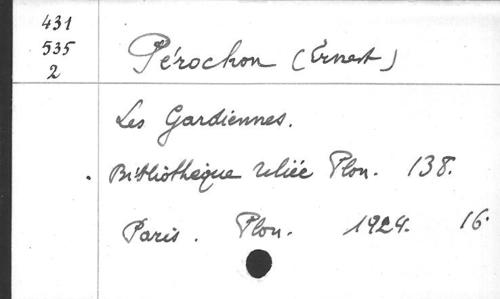 431
535
2
Pérochon (Ernest)
Les Gardiennes.
Bibliothèque reliée Plon. 138.
Paris. Plon. 1924. 16°